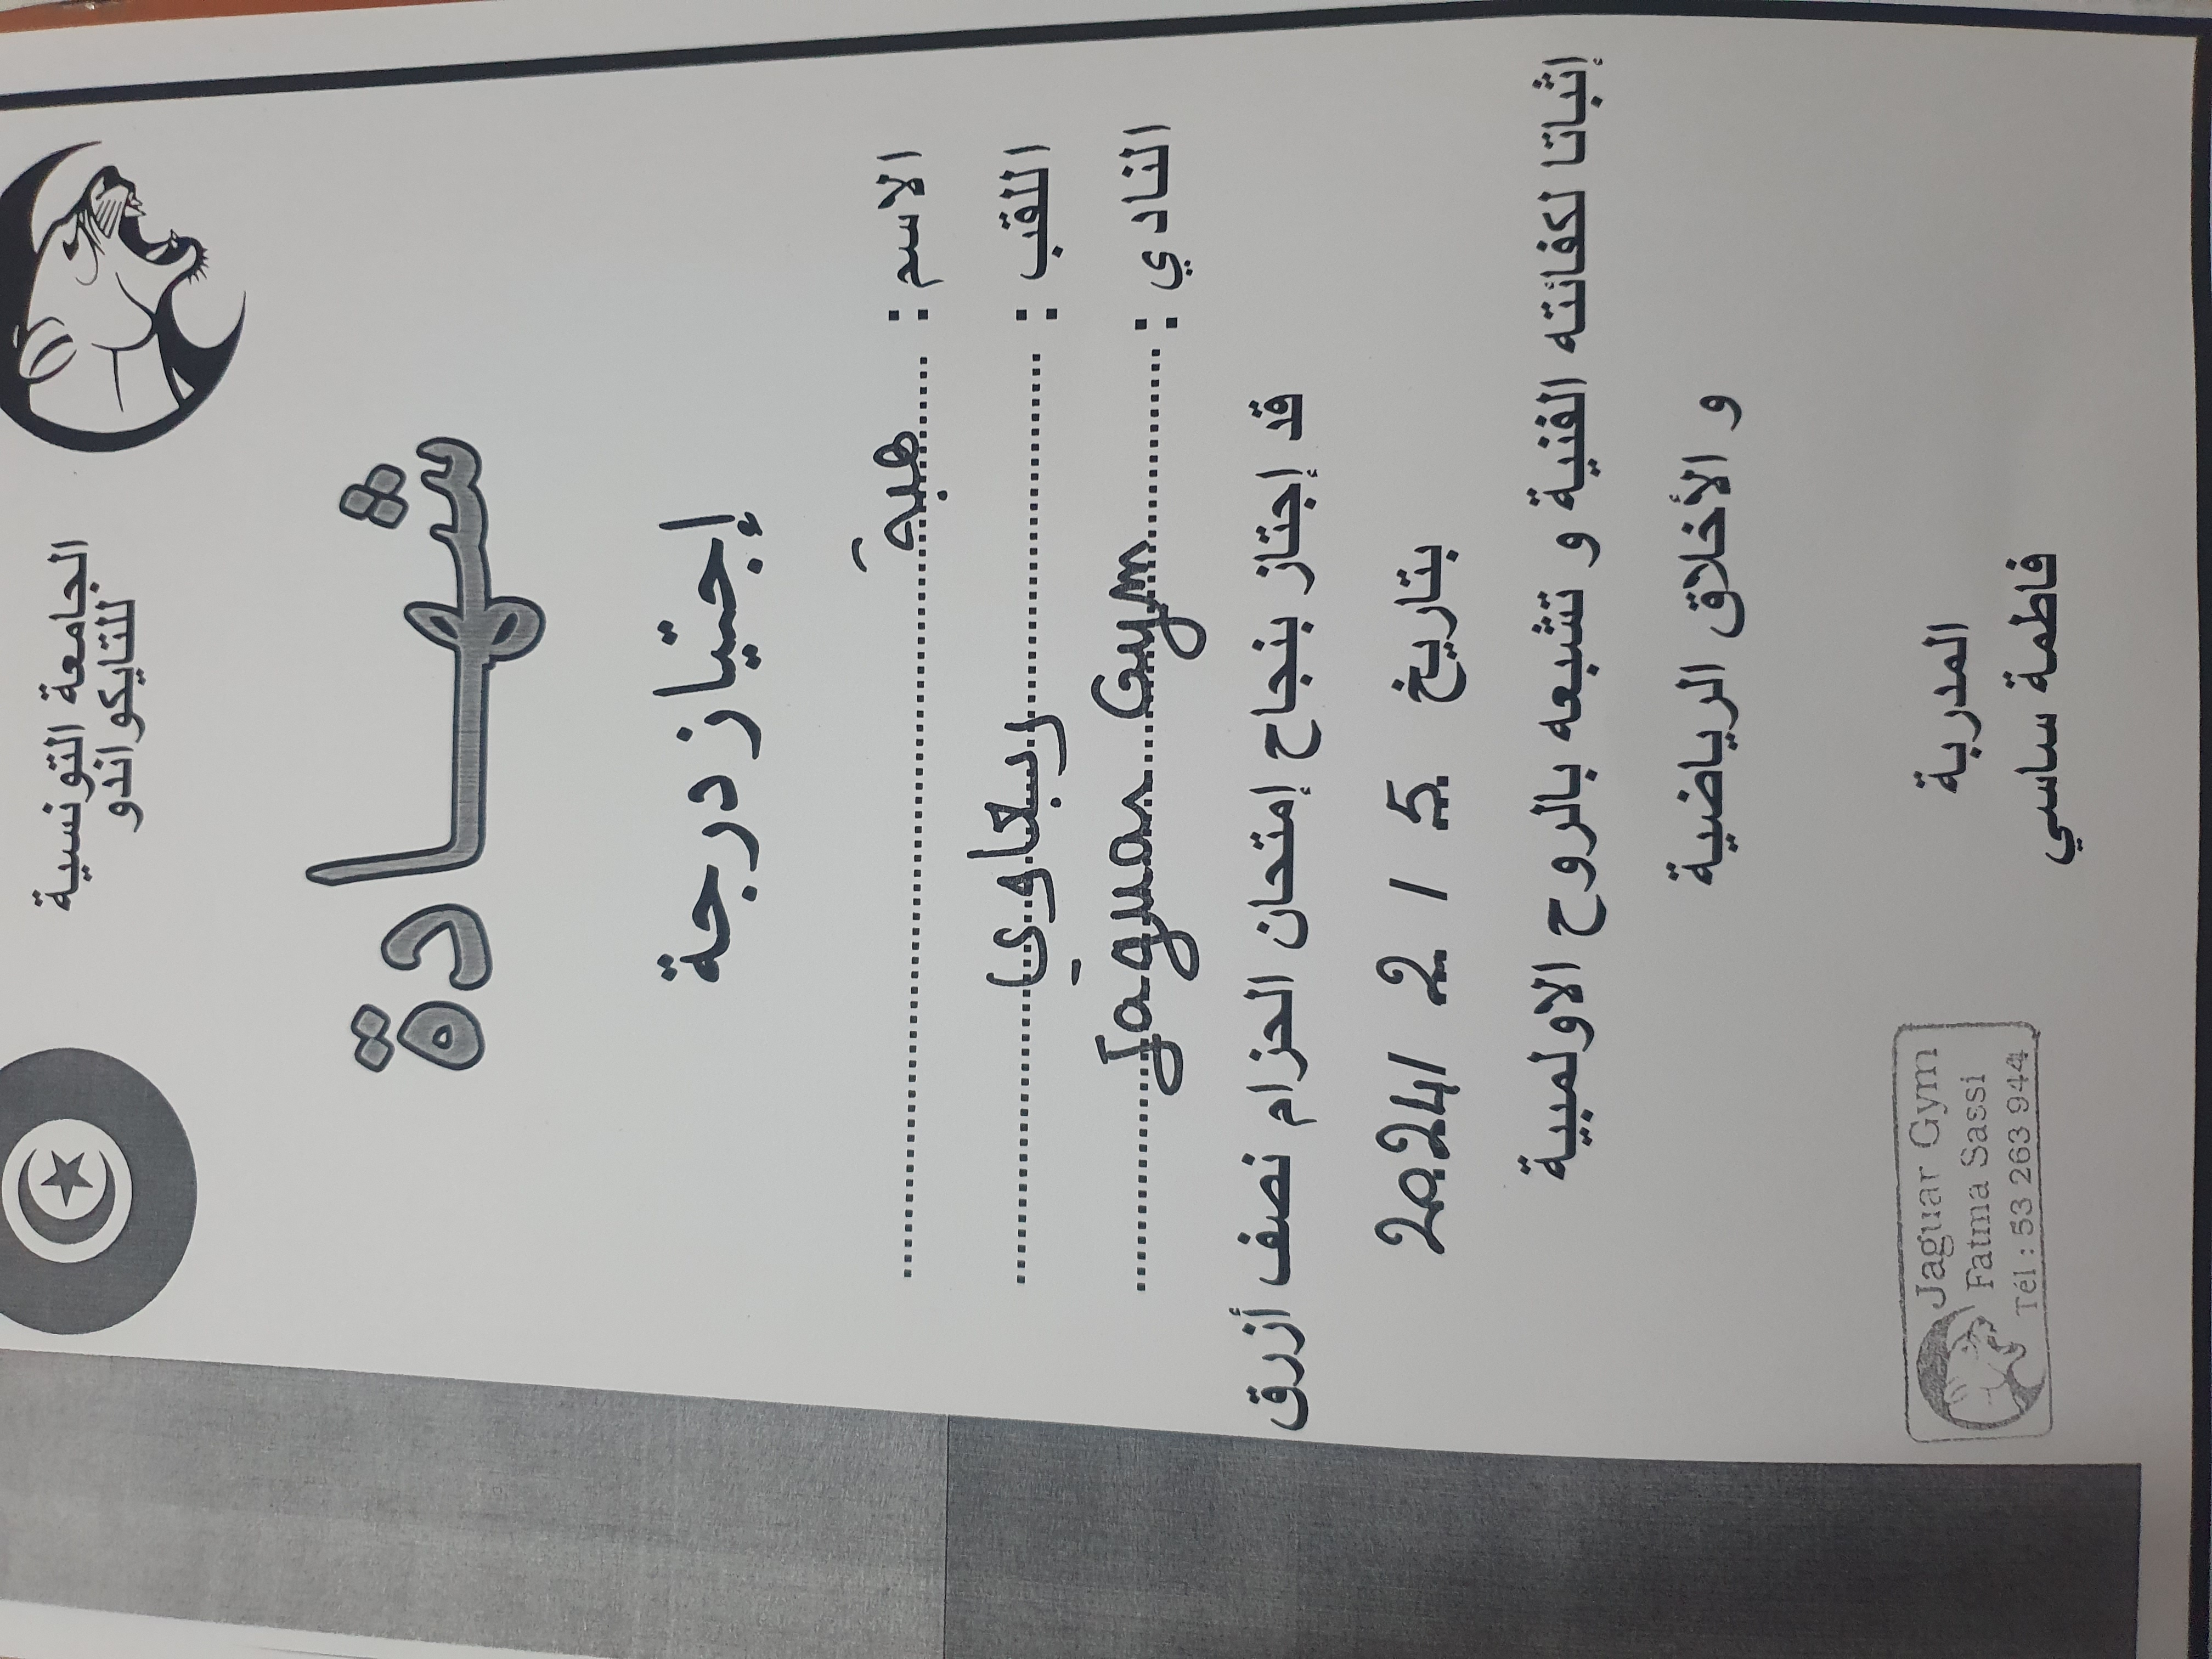 الجامعة التونسية
للتايكواندو
شهادة
إجتياز درجة
الاسم : هبة
اللقب :
النادي : Jaguar Gym
قد إجتاز بنجاح إمتحان الحزام نصف أزرق
بتاريخ 5 / 2 / 2024
إثباتا لكفائته الفنية و تشبعه بالروح الاولمبية
و الأخلاق الرياضية
المدربة
فاطمة ساسي
Jaguar Gym
Fatma Sassi
Tél : 53 263 944